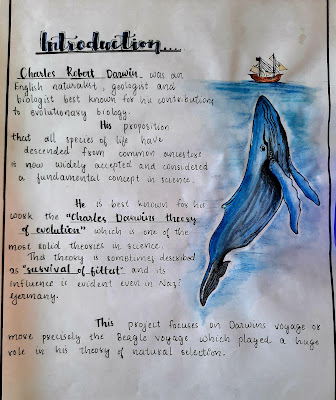 Introduction....
Charles Robert Darwin was an
English naturalist, geologist and
biologist best known for his contributions
to evolutionary biology.
His proposition
that all species of life have
descended from common ancestors
is now widely accepted and considered
a fundamental concept in science.
He is best known for his
work the "Charles Darwins theory
of evolution" which is one of the
most solid theories in science.
This theory is sometimes described
as "survival of fittat" and its
influence is evident even in Nazi
Germany.
This project focuses on Darwins voyage or
more precisely the Beagle voyage which played a huge
role in his theory of natural selection.